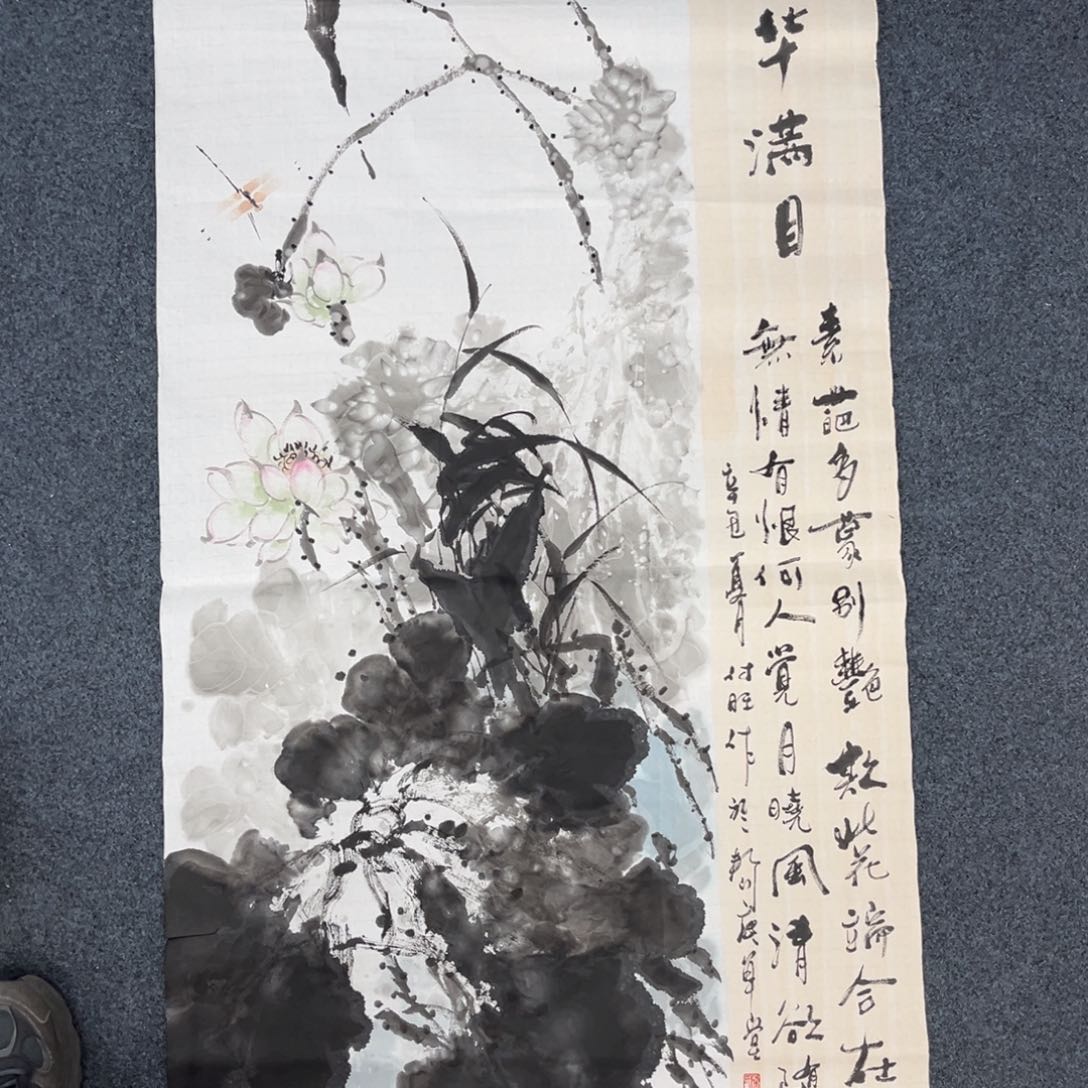 华满目
素葩多蒙别艷欺此花端合在
無情有恨何人覺月曉風清欲
辛丑夏月付旺作於草堂